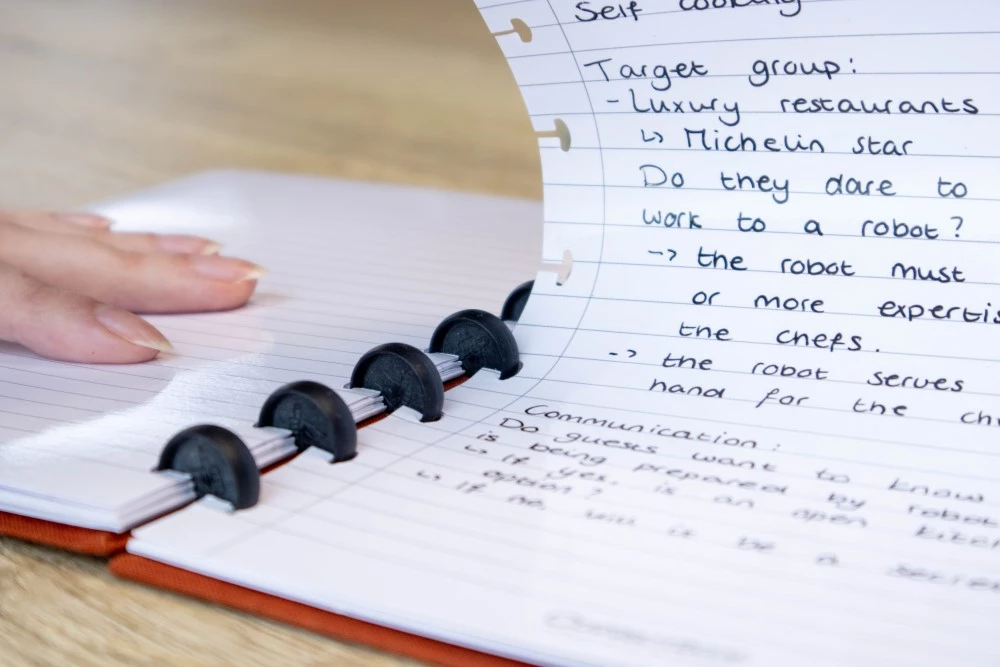 Self cooking
Target group:
- Luxury restaurants
↳ Michelin star
Do they dare to
work to a robot?
-> the robot must
or more expertis
the chefs.
-> the robot serves
hand for the ch
Communication:
Do guests want to know
is being prepared by robot
↳ If yes, is an open kitch
option?
↳ If no, will it be a secret